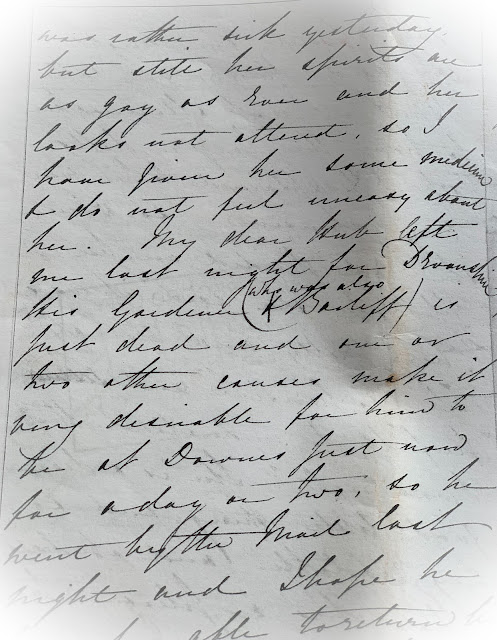 was rather sick yesterday.
but still her spirits are
as gay as Ever and her
looks not altered, so I
have given her some medicine
& do not feel uneasy about
her. My dear Hub left
me last night for Devonshire
His Gardener (who was also Bailiff) is
just dead and one or
two other causes make it
very desirable for him to
be at Downes just now
for a day or two, so he
went by the Mail last
night and I hope he
able to return